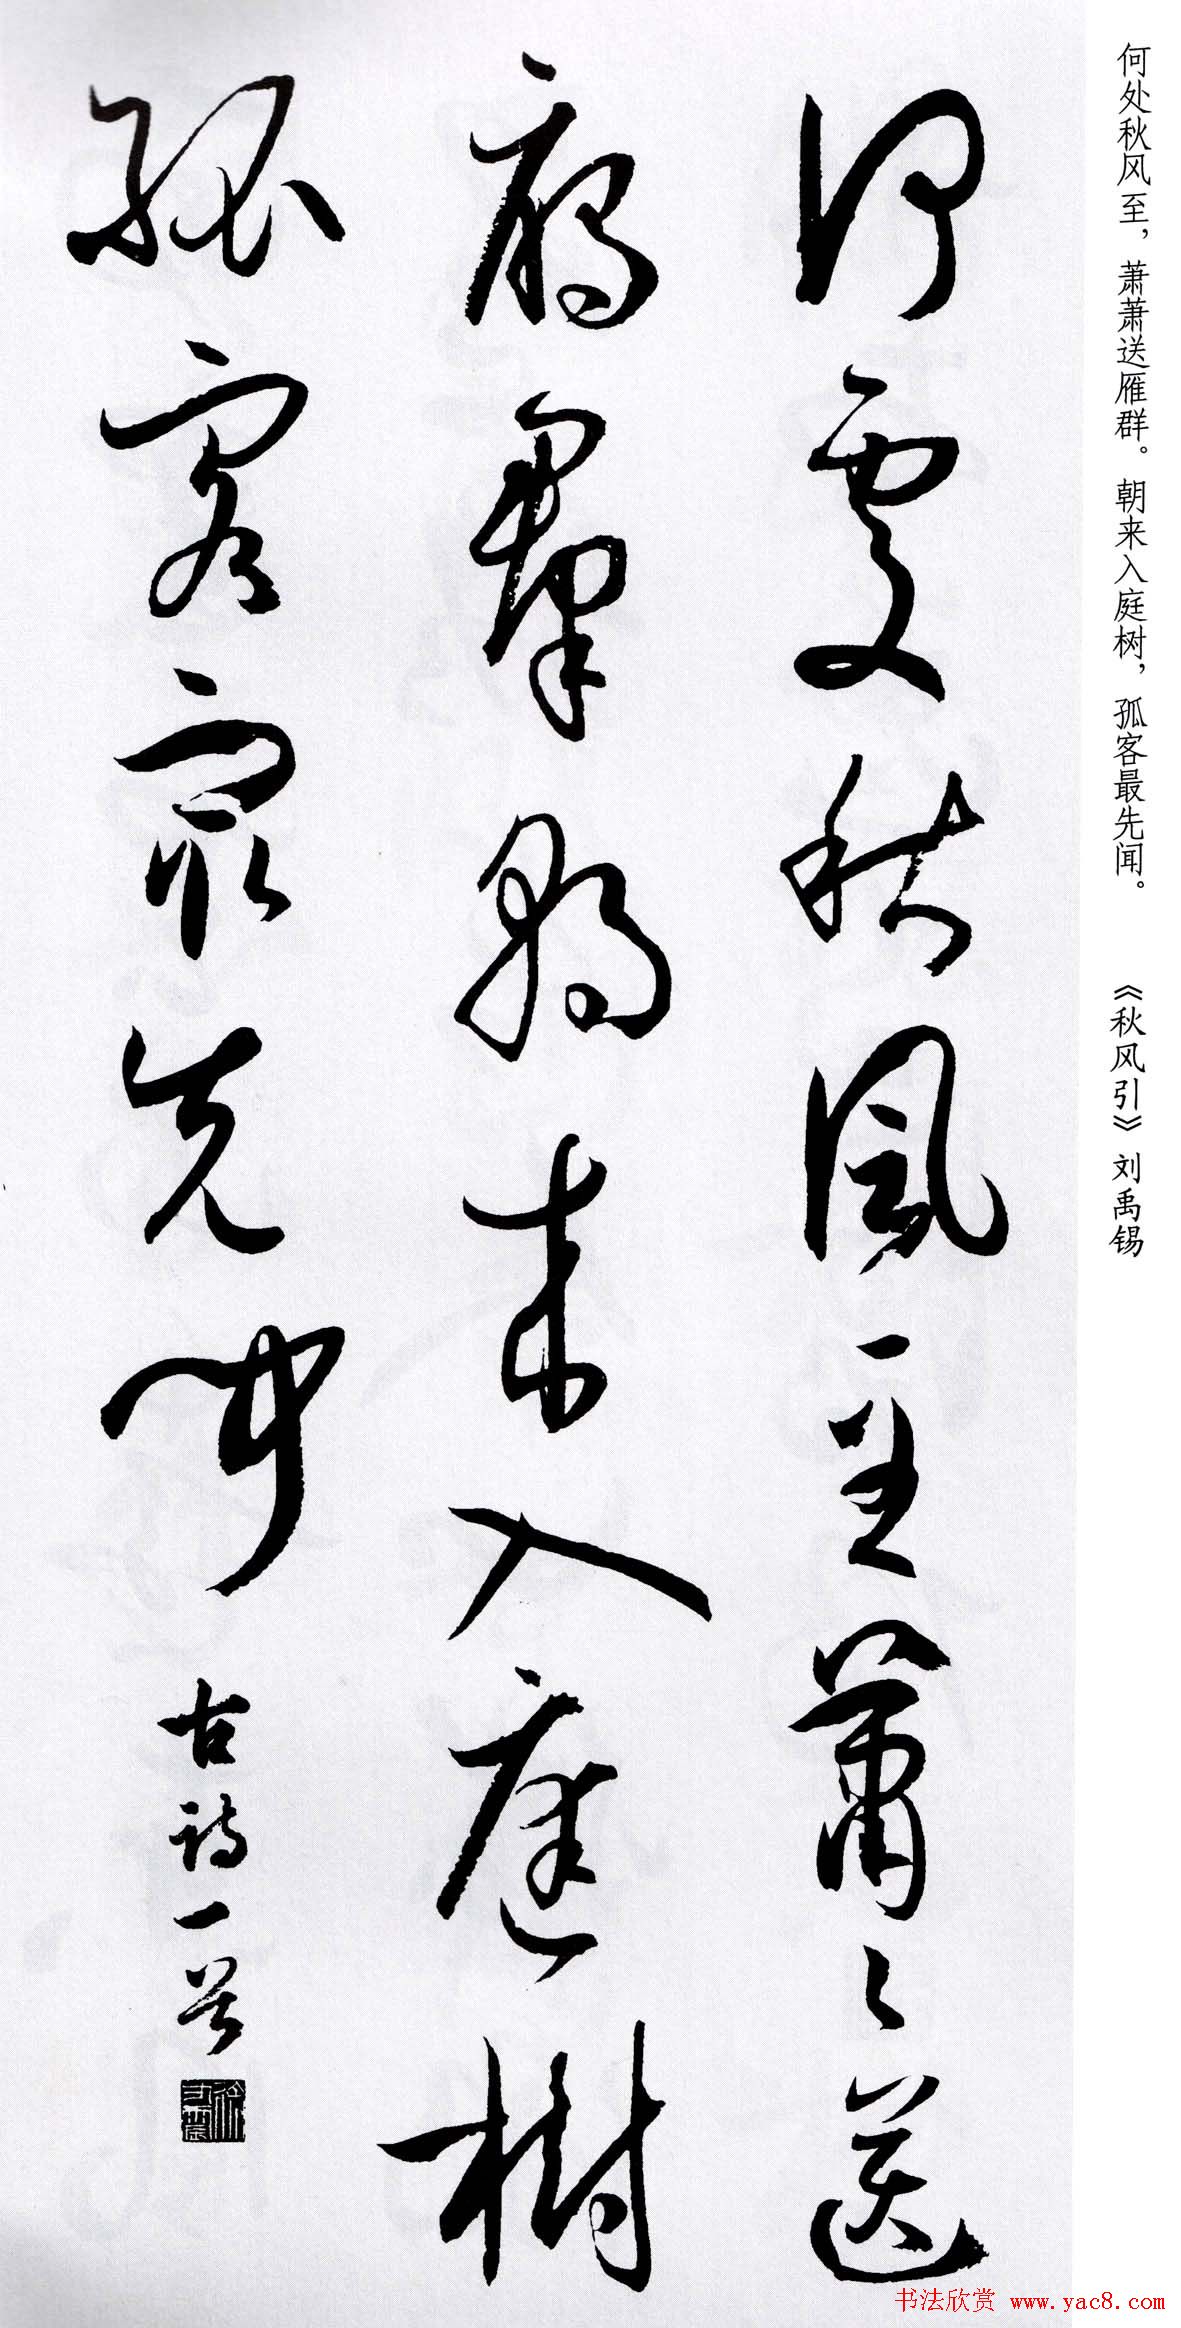 何处秋风至，萧萧送雁群。朝来入庭树，孤客最先闻。　《秋风引》刘禹锡
何處秋風至蕭〻送
雁羣朝来入庭樹
孤客最先聞
古詩一首
书法欣赏 www.yac8.com